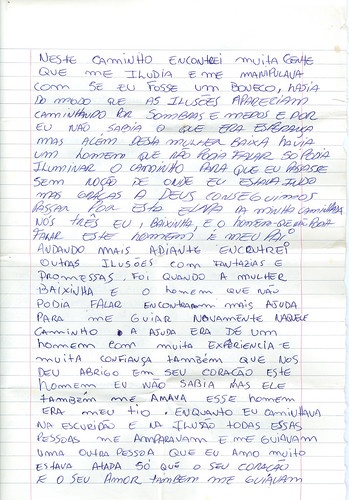 NESTE CAMINHO ENCONTREI MUITA GENTE
QUE ME ILUDIA E ME MANIPULAVA
COM SE EU FOSSE UM BONECO, HAJIA
DO MODO QUE AS ILUSÕES APARECIAM
CAMINHANDO POR SOMBRAS E MEDOS E DOR
EU NÃO SABIA O QUE ERA ESPERANÇA
MAS ALÉM DESTA MULHER BAIXA HAVIA
UM HOMEM QUE NÃO PODIA FALAR SO PODIA
ILUMINAR O CAMINHO PARA QUE EU PASASSE
SEM NOÇÃO DE ONDE EU ESTAVA INDO
MAS GRAÇAS A DEUS CONSEGUIMOS
PASSAR POR ESTA A MINHA CAMINHADA
NOS TRÊS EU, BAIXINHA, E O HOMEM QUE NÃO PODIA
FALAR ESTE HOMEM É MEU PAI
ANDANDO MAIS ADIANTE ENCONTREI
OUTRAS ILUSÕES COM FANTAZIAS E
PROMESSAS. FOI QUANDO A MULHER
BAIXINHA E O HOMEM QUE NÃO
PODIA FALAR ENCONTRARAM MAIS AJUDA
PARA ME GUIAR NOVAMENTE NAQUELE
CAMINHO. A AJUDA ERA DE UM
HOMEM COM MUITA EXPERIENCIA E
MUITA CONFIANÇA TAMBÉM QUE NOS
DEU ABRIGO EM SEU CORAÇÃO ESTE
HOMEM EU NÃO SABIA MAS ELE
TAMBÉM ME AMAVA ESSE HOMEM
ERA MEU TIO. ENQUANTO EU CAMINHAVA
NA ESCURIDÃO E NA ILUSÃO TODAS ESSAS
PESSOAS ME AMPARAVAM E ME GUIAVAM
UMA OUTRA PESSOA QUE EU AMO MUITO
ESTAVA ATADA SÓ QUE O SEU CORAÇÃO
E O SEU AMOR TAMBEM ME GUIAVAM